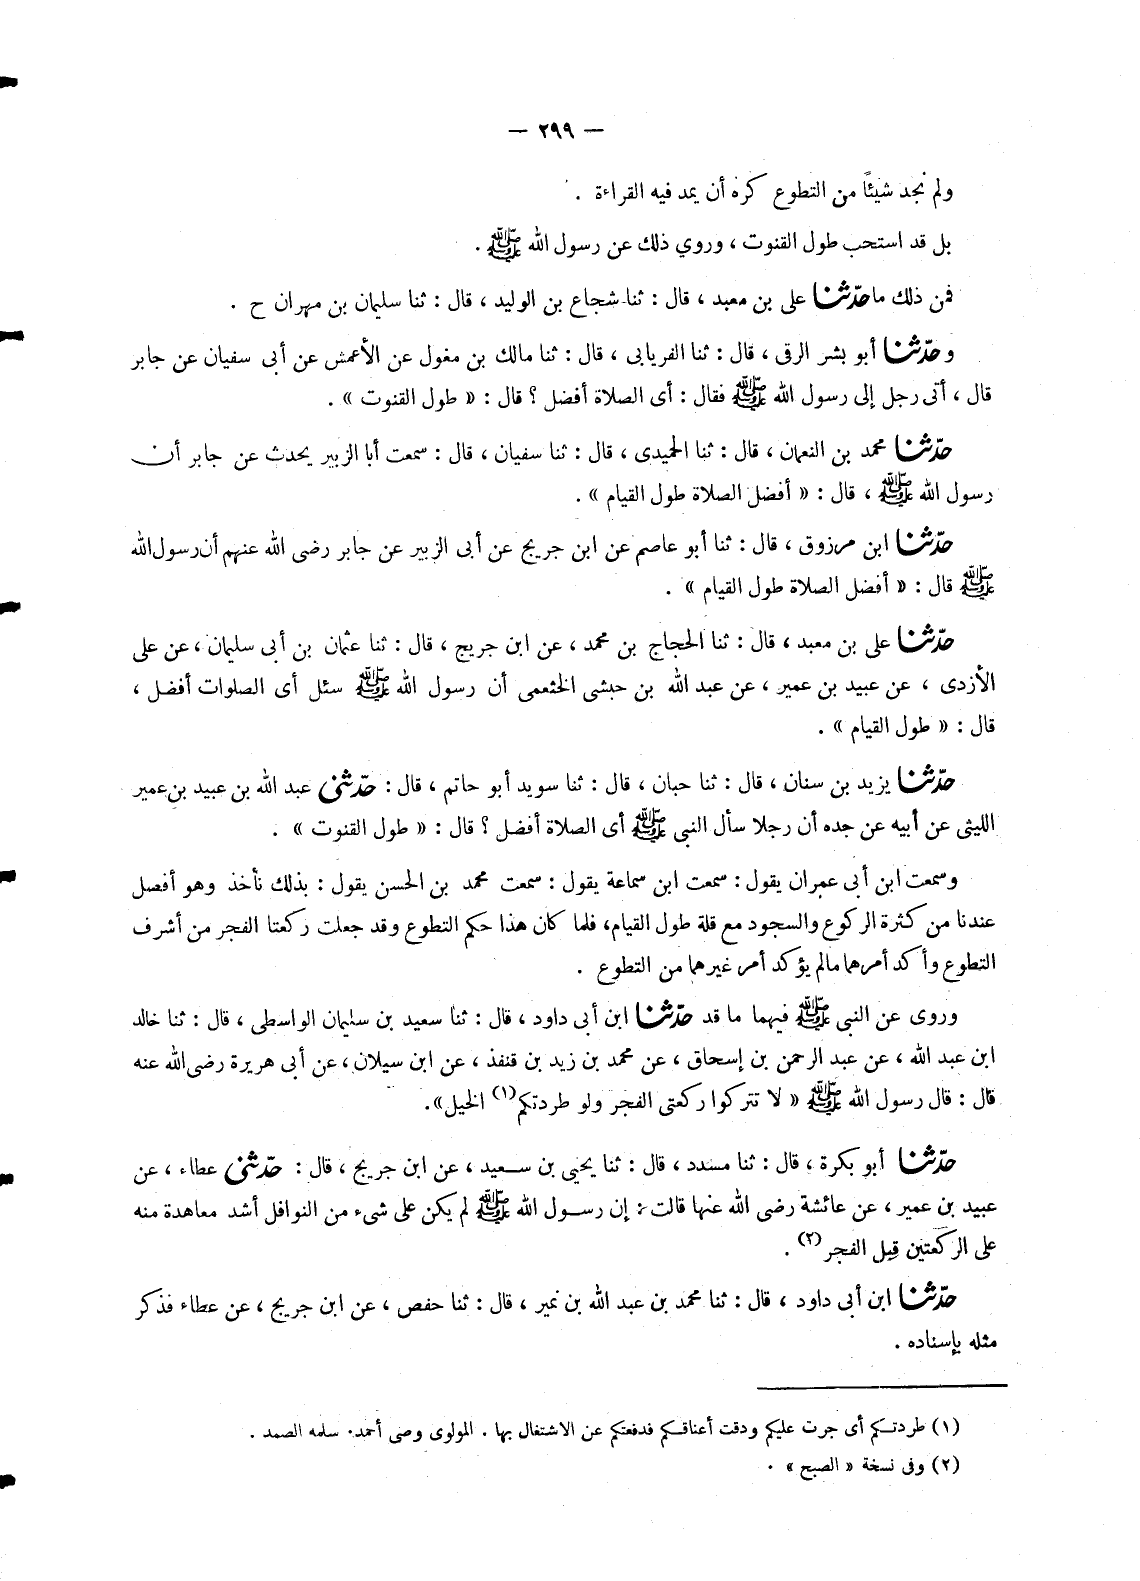 — ٢٩٩ —
ولم نجد شيئًا من التطوع كره أن يمد فيه القراءة .
بل قد استحب طول القنوت ، وروي ذلك عن رسول الله ﷺ .
فمن ذلك ما حدّثنا على بن معبد ، قال : ثنا شجاع بن الوليد ، قال : ثنا سليمان بن مهران ح .
وحدّثنا أبو بشر الرقى ، قال : ثنا الفريابى ، قال : ثنا مالك بن مغول عن الأعمش عن أبى سفيان عن جابر
قال ، أتى رجل إلى رسول الله ﷺ فقال : أى الصلاة أفضل ؟ قال : « طول القنوت » .
حدّثنا محمد بن النعمان ، قال : ثنا الحميدى ، قال : ثنا سفيان ، قال : سمعت أبا الزبير يحدث عن جابر أن
رسول الله ﷺ ، قال : « أفضل الصلاة طول القيام » .
حدّثنا ابن مرزوق ، قال : ثنا أبو عاصم عن ابن جريج عن أبى الزبير عن جابر رضى الله عنهم أن رسول الله
ﷺ قال : « أفضل الصلاة طول القيام » .
حدّثنا على بن معبد ، قال : ثنا الحجاج بن محمد ، عن ابن جريج ، قال : ثنا عثمان بن أبى سليمان ، عن على
الأزدى ، عن عبيد بن عمير ، عن عبد الله بن حبشى الخثعمى أن رسول الله ﷺ سئل أى الصلوات أفضل ،
قال : « طول القيام » .
حدّثنا يزيد بن سنان ، قال : ثنا حبان ، قال : ثنا سويد أبو حاتم ، قال : حدّثنى عبد الله بن عبيد بن عمير
الليثى عن أبيه عن جده أن رجلا سأل النبى ﷺ أى الصلاة أفضل ؟ قال : « طول القنوت » .
وسمعت ابن أبى عمران يقول : سمعت ابن سماعة يقول : سمعت محمد بن الحسن يقول : بذلك نأخذ وهو أفضل
عندنا من كثرة الركوع والسجود مع قلة طول القيام، فلما كان هذا حكم التطوع وقد جعلت ركعتا الفجر من أشرف
التطوع وأكد أمرهما مالم يؤكد أمر غيرهما من التطوع .
وروى عن النبى ﷺ فيهما ما قد حدّثنا ابن أبى داود ، قال : ثنا سعيد بن سليمان الواسطى ، قال : ثنا خالد
ابن عبد الله ، عن عبد الرحمن بن إسحاق ، عن محمد بن زيد بن قنفذ ، عن ابن سيلان ، عن أبى هريرة رضى الله عنه
قال : قال رسول الله ﷺ « لا تتركوا ركعتى الفجر ولو طردتكم(١) الخيل».
حدّثنا أبو بكرة ، قال : ثنا مسدد ، قال : ثنا يحيى بن سعيد ، عن ابن جريج ، قال : حدّثنى عطاء ، عن
عبيد بن عمير ، عن عائشة رضى الله عنها قالت : إن رسول الله ﷺ لم يكن على شىء من النوافل أشد معاهدة منه
على الركعتين قبل الفجر(٢) .
حدّثنا ابن أبى داود ، قال : ثنا محمد بن عبد الله بن نمير ، قال : ثنا حفص ، عن ابن جريج ، عن عطاء فذكر
مثله بإسناده .
(١) طردتكم أى جرت عليكم ودقت أعناقكم فدفعتكم عن الاشتغال بها . المولوى وصى أحمد. سلمه الصمد .
(٢) وفى نسخة « الصبح » .